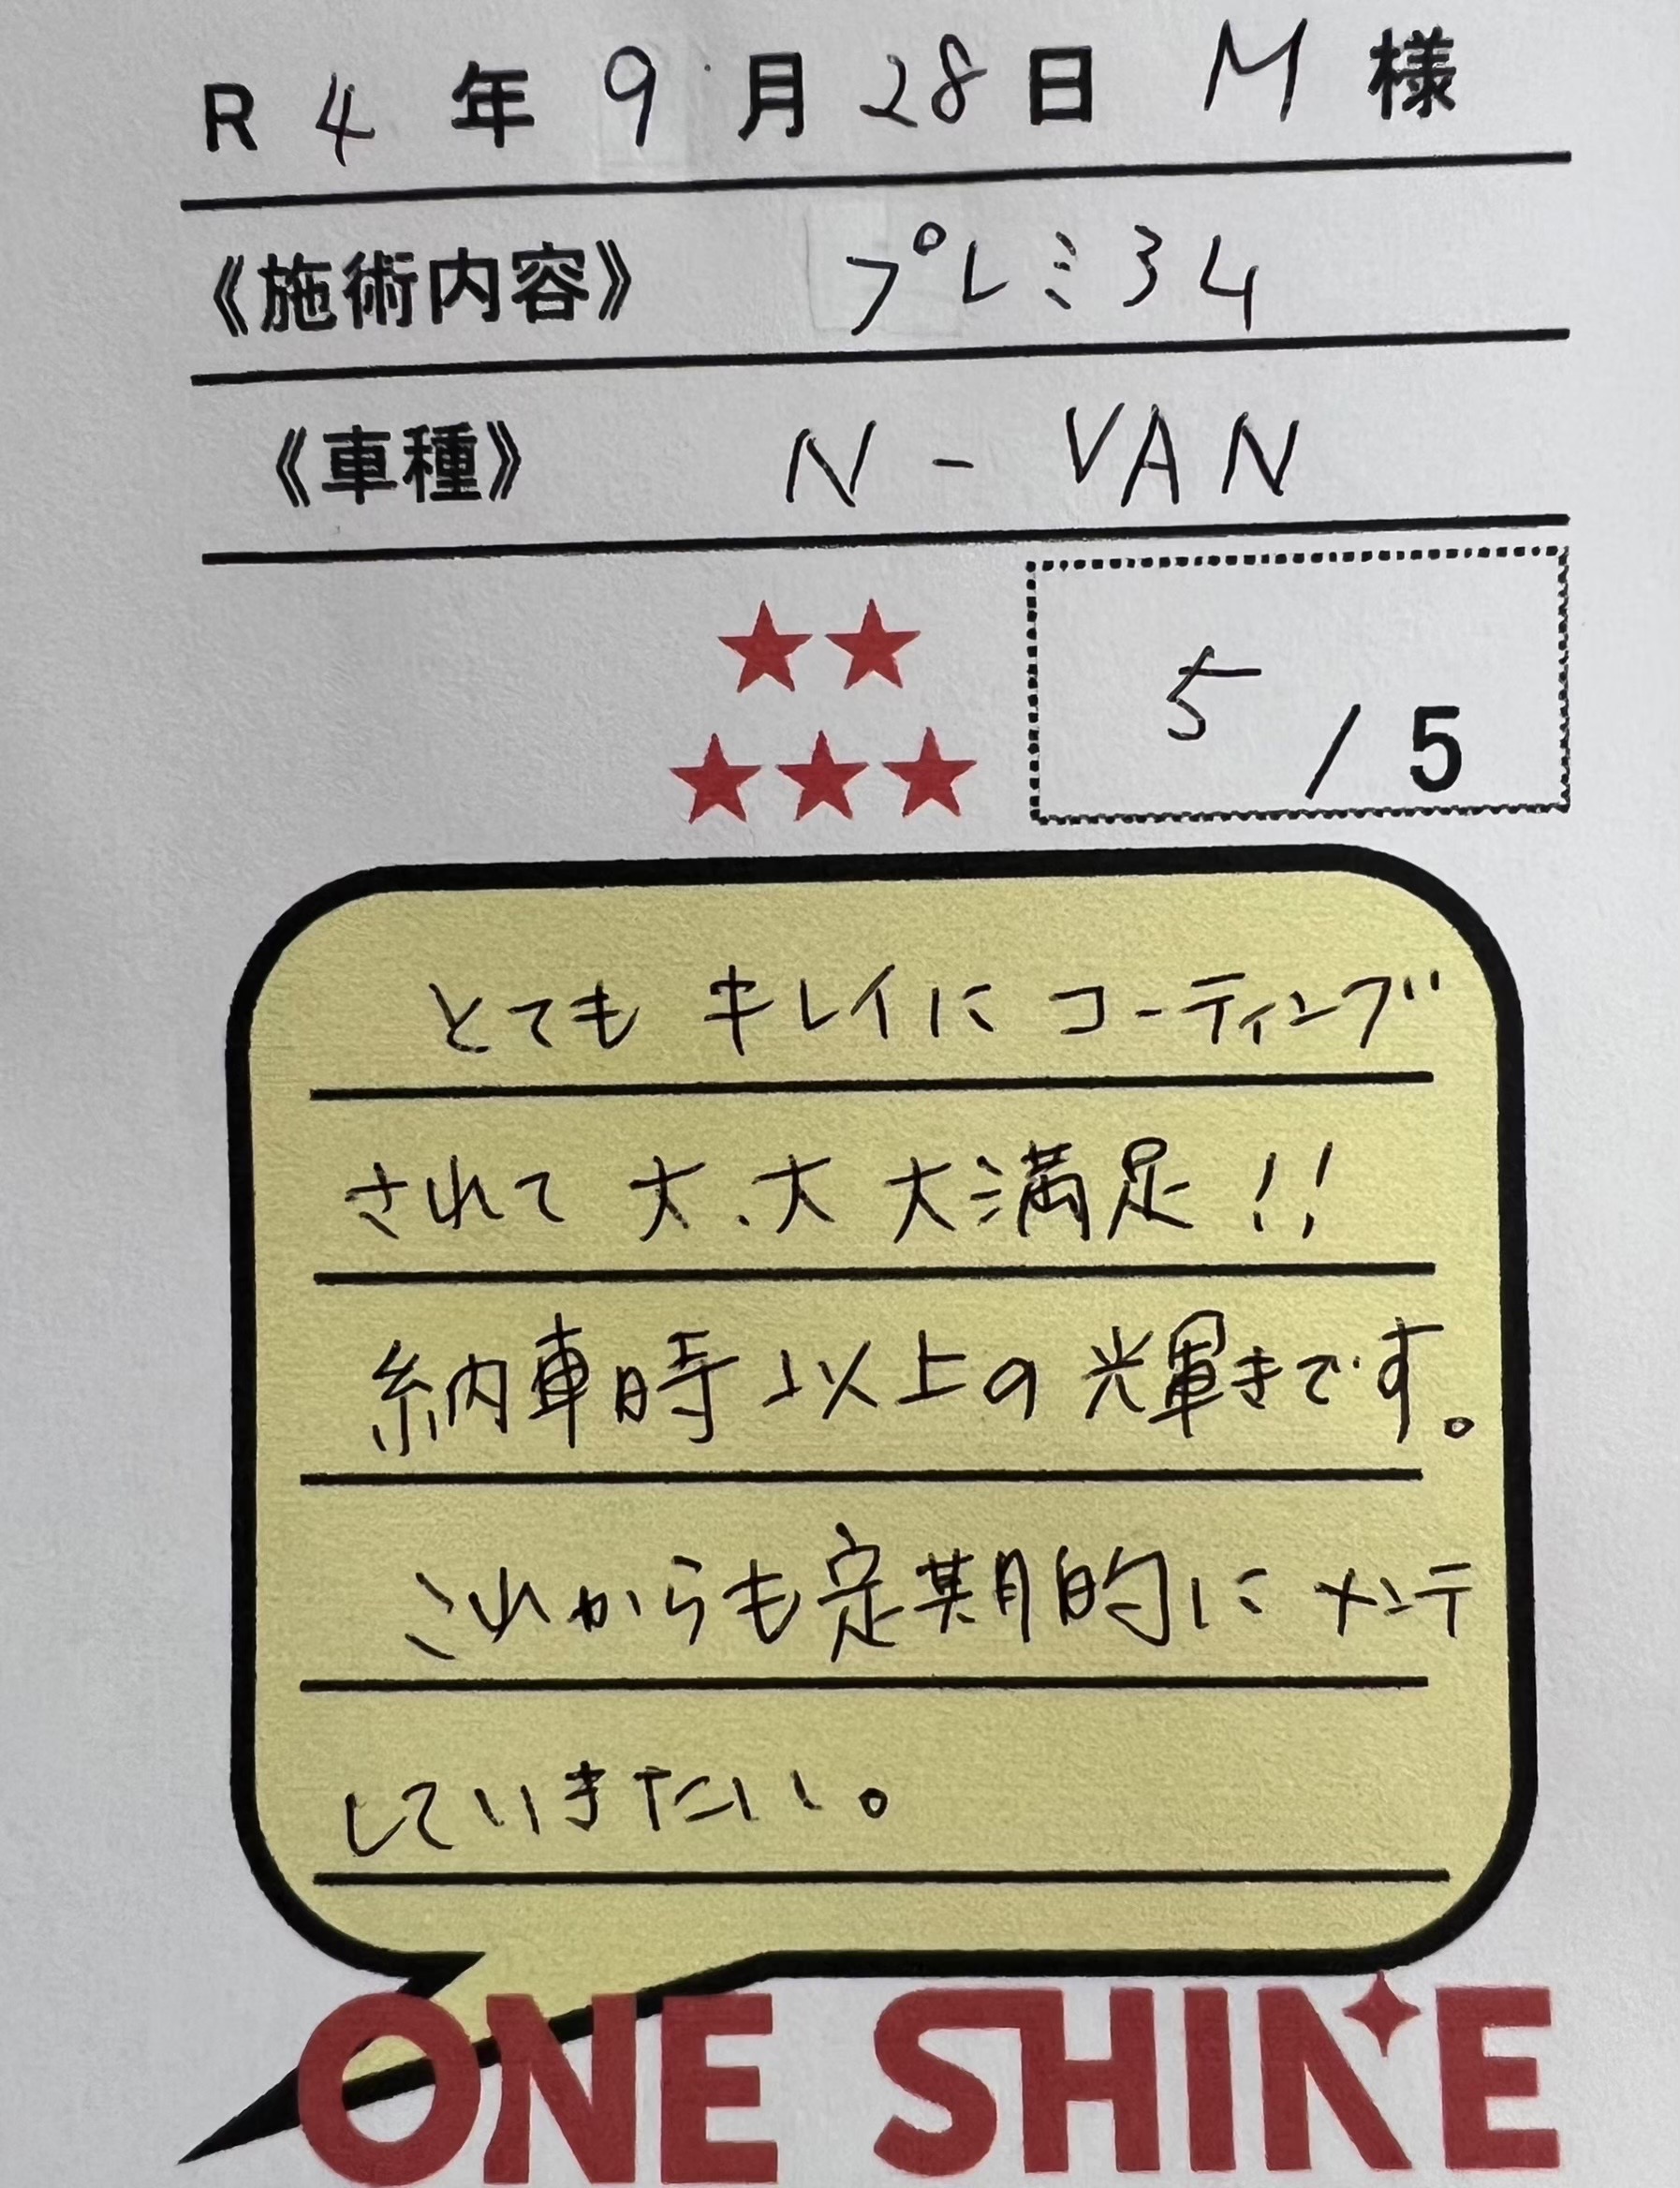 R 4 年 9 月 28 日 M 様
《施術内容》 プレミ34
《車種》 N-VAN
5 / 5
とても キレイに コーティング
されて 大、大 大満足!!
納車時以上の光輝きです。
これからも定期的に メンテ
していきたい。
ONE SHINE